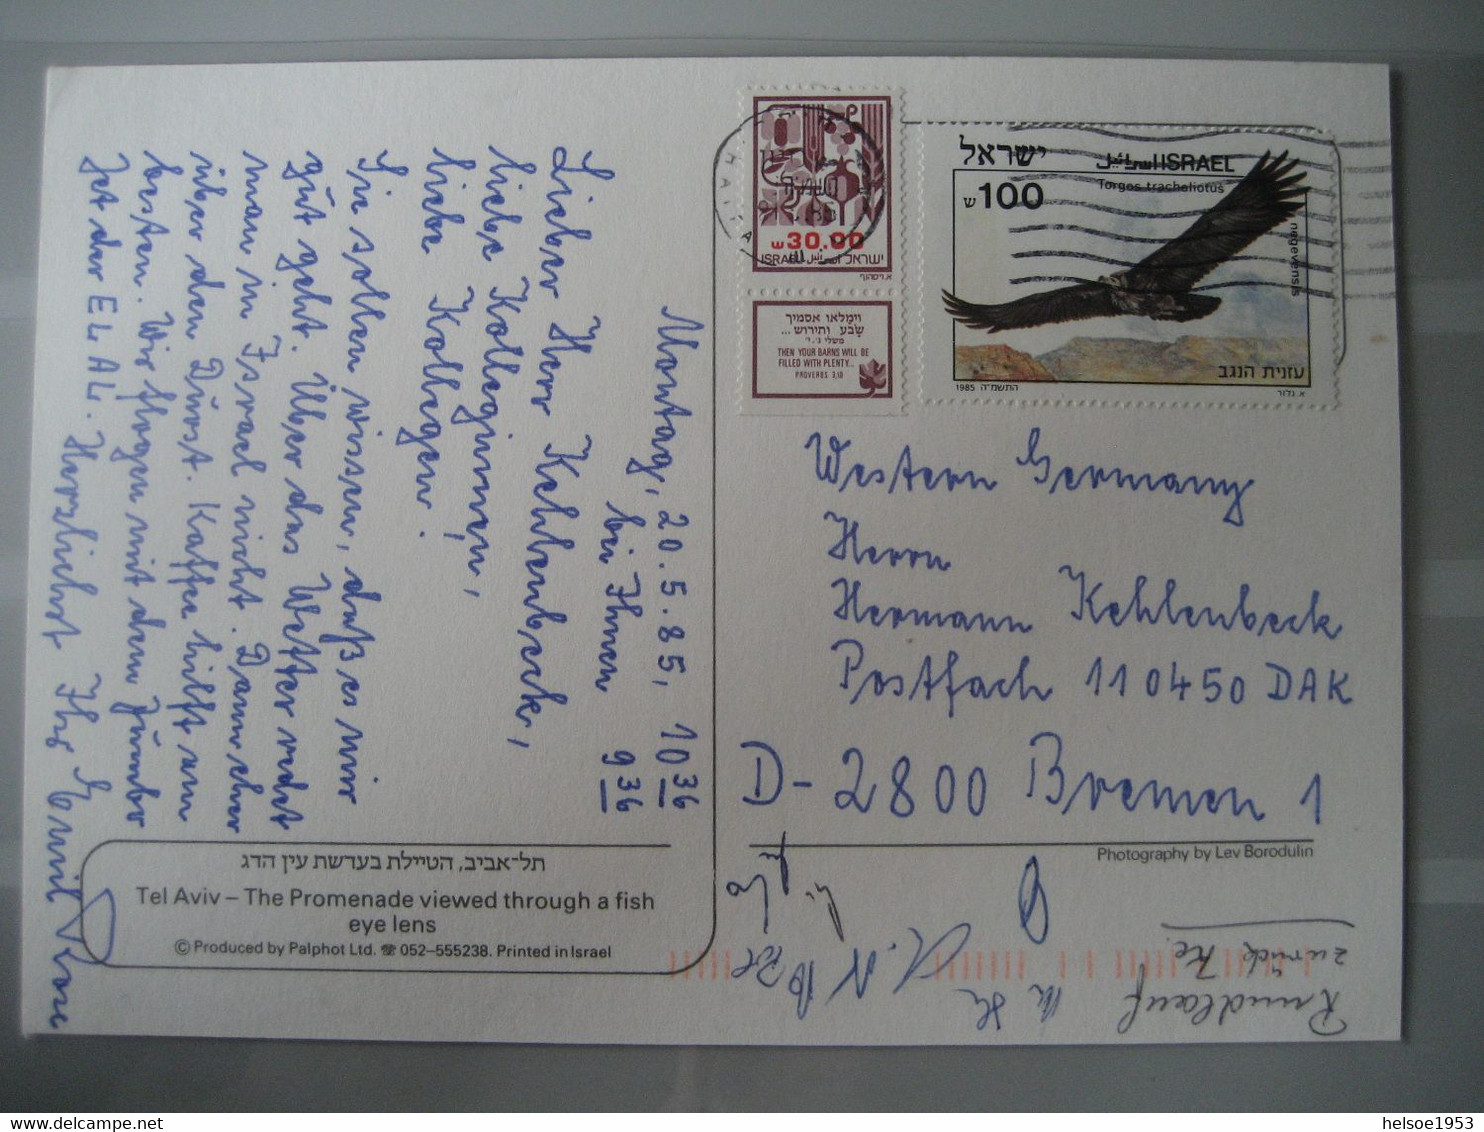 Montag, 20.5.85, 10 36
bei Ihnen 9 36
Lieber Herr Kehlenbeck,
liebe Kolleginnen,
liebe Kollegen.
Sie sollen wissen, daß es mir
gut geht. Über das Wetter redet
man in Israel nicht. Dann eher
über den Durst. Kaffee hilft am
besten. Wir flogen mit dem Jumbo
Jet der EL AL. Herzlichst Ihr Emil
תל-אביב, הטיילת בעדשת עין הדג
Tel Aviv – The Promenade viewed through a fish
eye lens
© Produced by Palphot Ltd. ☎ 052–555238. Printed in Israel
ש 30.00
ISRAEL اسرائيل ישראל
וימלאו אסמיך
שבע ותירוש...
משלי ג', י'
THEN YOUR BARNS WILL BE
FILLED WITH PLENTY...
PROVERBS 3,10
ישראל اسرائيل ISRAEL
Torgos tracheliotus
negevensis
ש 100
עזנית הנגב
1985 התשמ"ה
א. גלור
Western Germany
Herrn
Hermann Kehlenbeck
Postfach 110450 DAK
D-2800 Bremen 1
Photography by Lev Borodulin
Rundlauf
zurück Ke.
helsoe1953